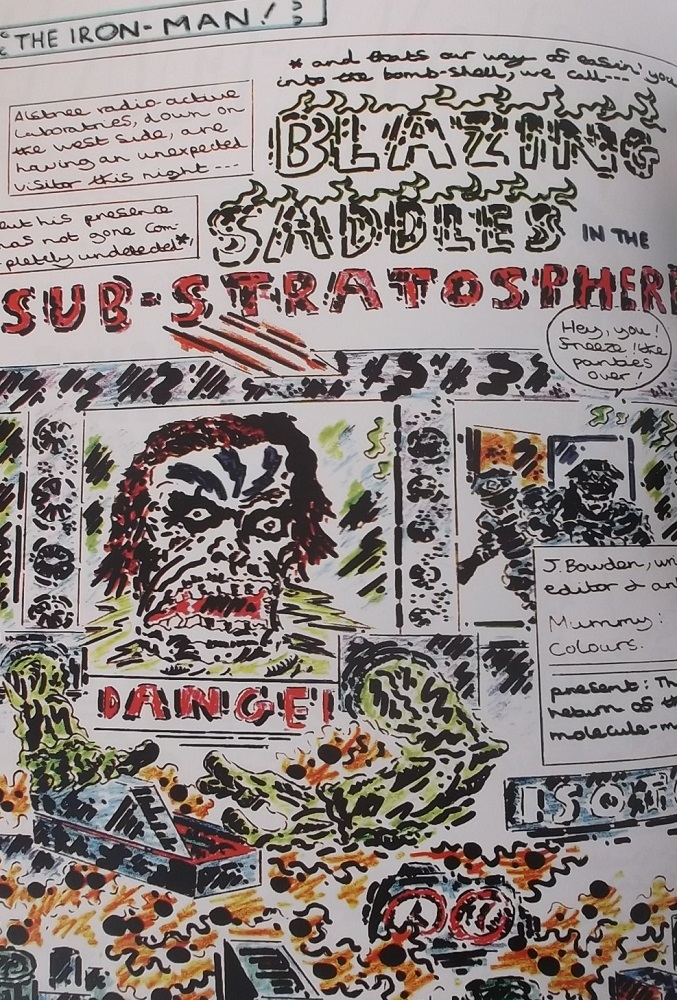 "THE IRON-MAN!"
* and thats our way of easin' you
into the bomb-shell, we call---
Alstree radio-active
Labortries, down on
the west side, are
having an unexpected
visitor this night ---
BLAZING
SADDLES
IN THE
but his presence
has not gone com-
pletely undetected*,
SUB-STRATOSPHERE
Hey, you!
Freeze! the
parties
over!
J. Bowden, wri
editor & an
Mummy:
Colours.
present: Th
return of th
molecule-m
DANGE
ISOTO